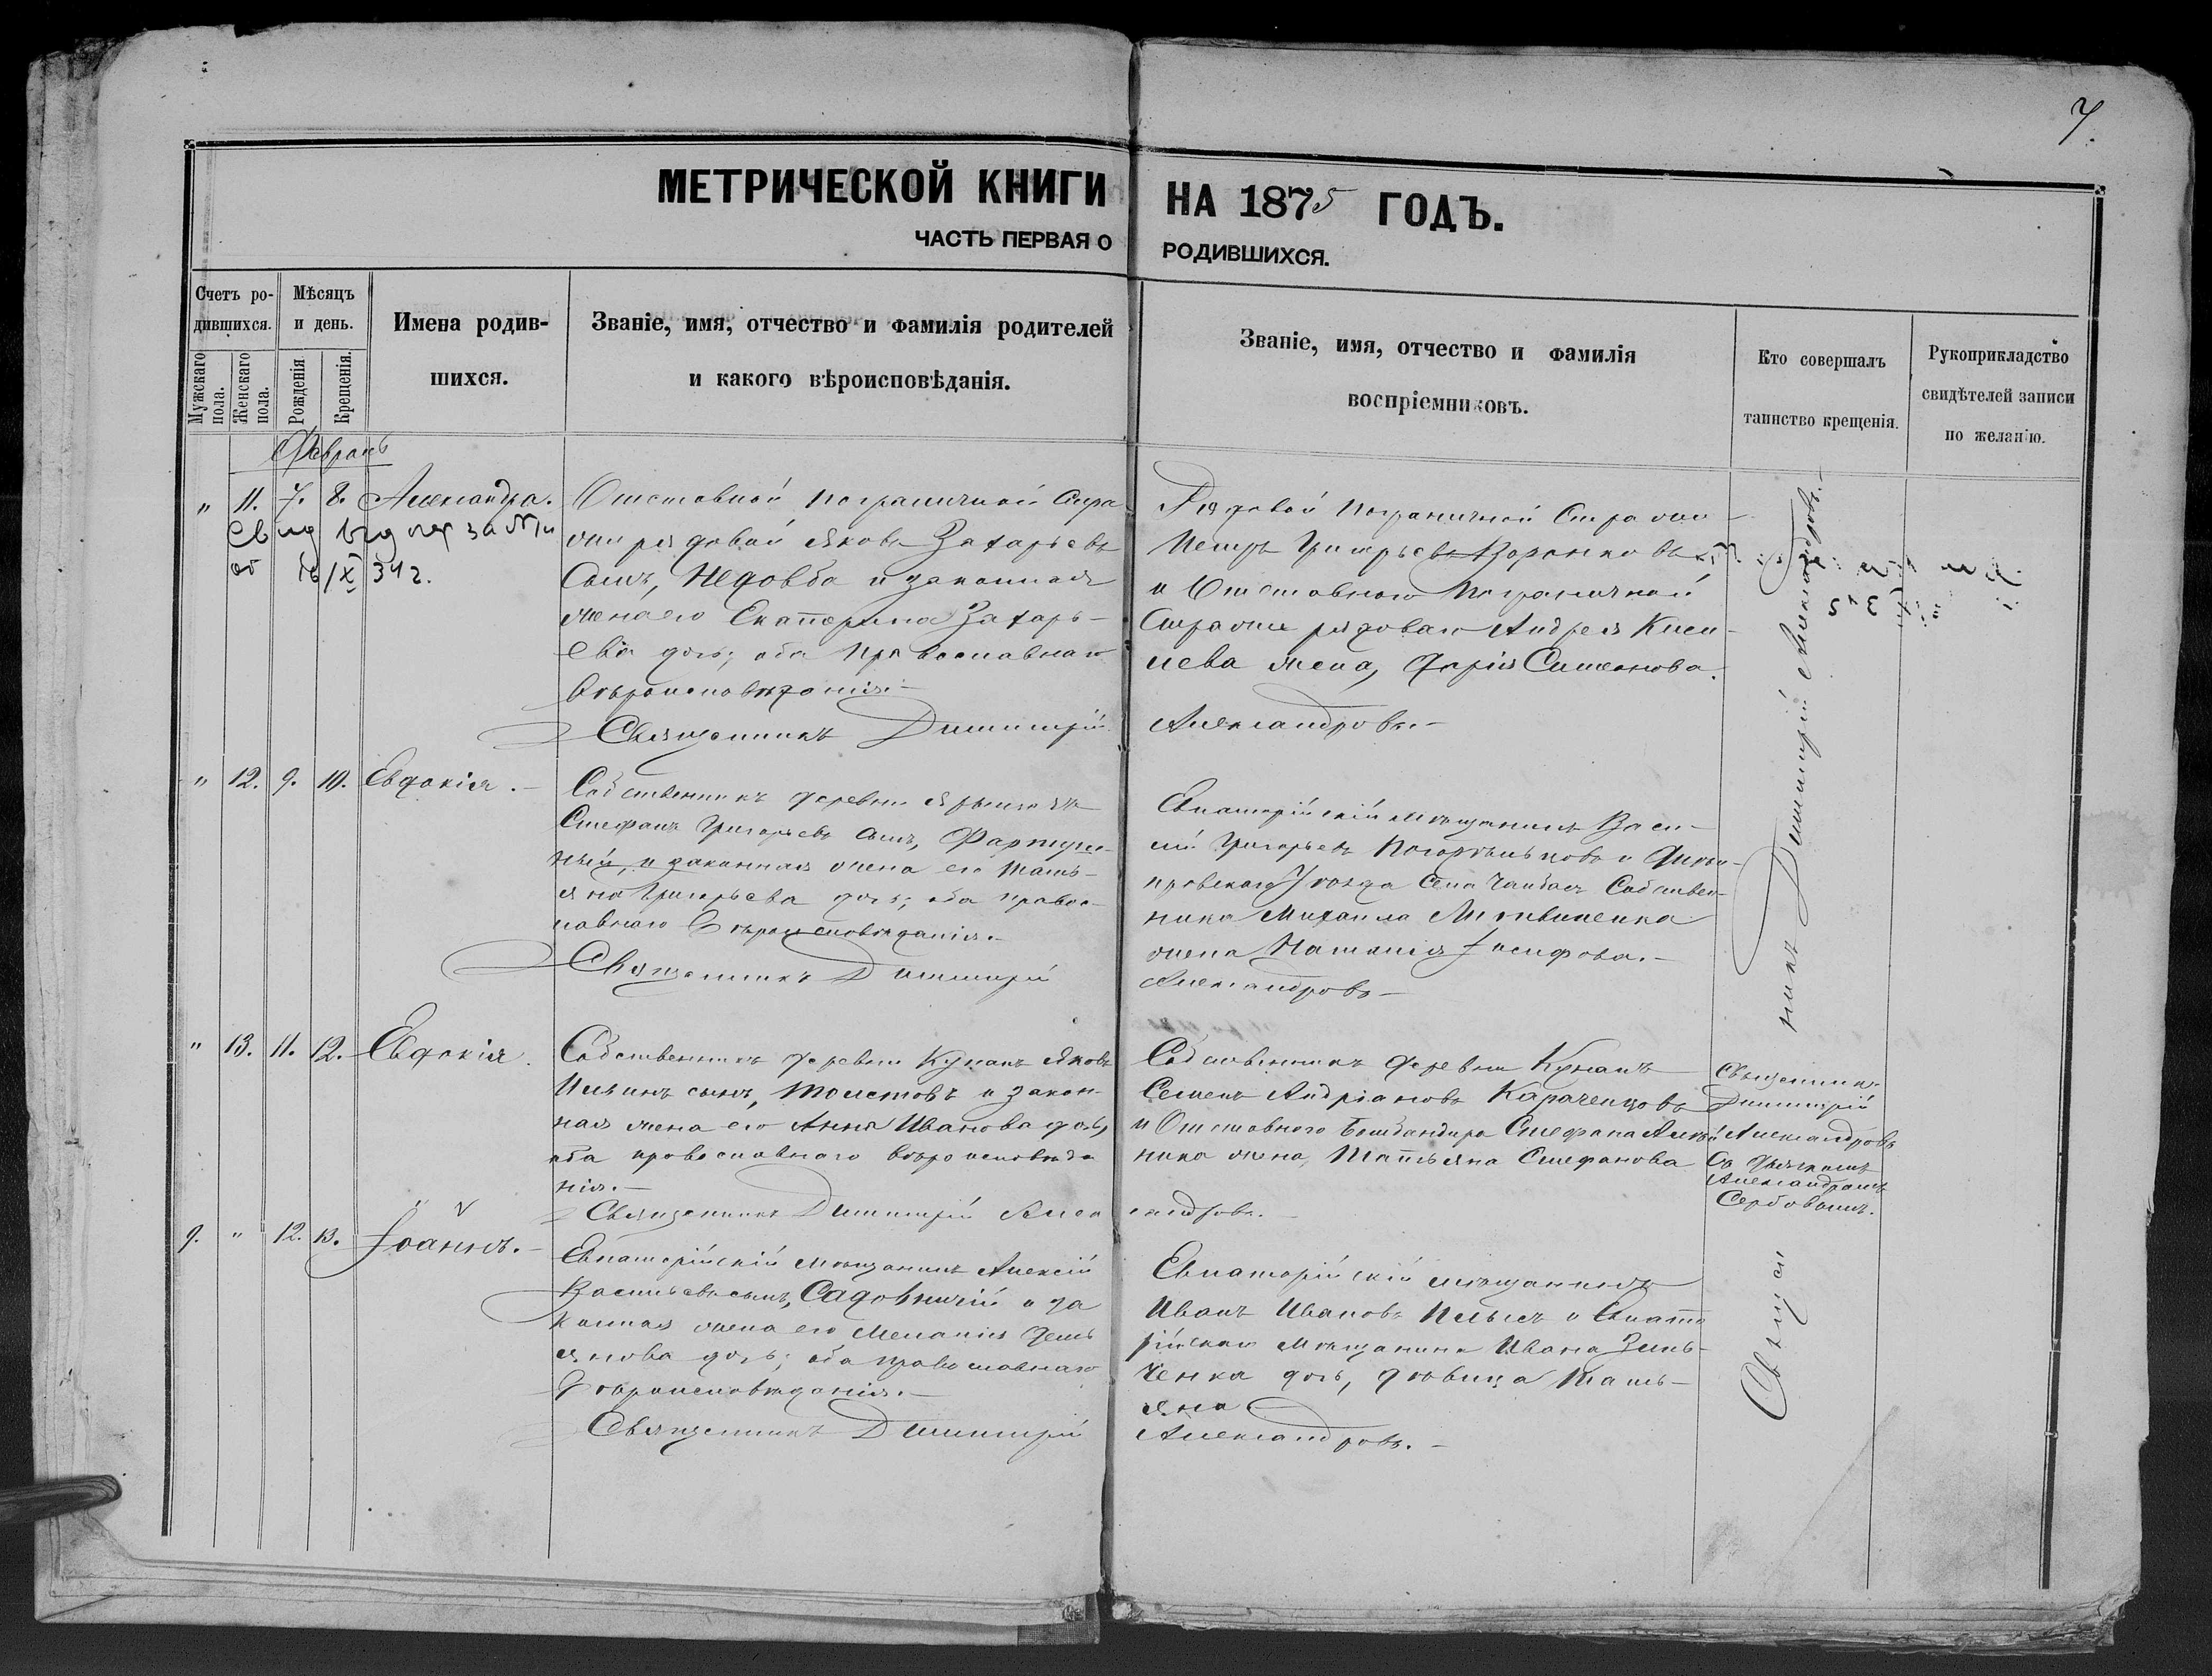 7.
МЕТРИЧЕСКОЙ КНИГИ НА 1875 ГОДЪ.
ЧАСТЬ ПЕРВАЯ О РОДИВШИХСЯ.
Счетъ ро-
дившихся.
Мужскаго пола.
Женскаго пола.
Мѣсяцъ
и день.
Рожденія
Крещенія.
Имена родив-
шихся.
Званіе, имя, отчество и фамилія родителей
и какого вѣроисповѣданія.
Званіе, имя, отчество и фамилія
воспріемниковъ.
Кто совершалъ
таинство крещенія.
Рукоприкладство
свидѣтелей записи
по желанію.
Февраль
" 11. 7. 8. Александра.
Отставной пограничной Стра
жи рядовой Яковъ Захарьевъ
Сынъ, Недовба и законная
жена его Екатерина Захарь-
ева дочь; оба православнаго
вѣроисповѣданія.-
Священникъ Димитрій
Рядовой пограничной Стражи
Петръ
и Отставного пограничной
Стражи рядоваго Андрея Кисе-
лева жена, Дарія Симеонова.
Александровъ.-
34 г.
" 12. 9. 10. Евдокія.-
Собственникъ деревни
Стефанъ Григорьевъ сынъ,
и законная жена его Тать-
яна Григорьева дочь; оба право-
славнаго вѣроисповѣданія.-
Священникъ Димитрій
Евпаторійскій мѣщанинъ Васи-
лій Григорьевъ и Днѣ-
провскаго Уѣзда Села Чаплъ Собствен-
ника Михаила Литвиненка
жена Наталія Іосифова.-
Александровъ-
" 13. 11. 12. Евдокія.
Собственникъ деревни Кунанъ Яковъ
Ильинъ сынъ, Толстовъ и закон-
ная жена его Анна Иванова дочь,
оба православнаго вѣроисповѣда
нія.-
Священникъ Димитрій Алек
Собственникъ деревни Кунанъ
Семенъ Андріановъ Караченцовъ
и Отставного Бомбандира Стефана
жена, Татьяна Стефанова
сандровъ.-
Священникъ
Димитрій
Александровъ
Съ дьячкомъ
Александромъ
Сербовымъ.
9. " 12. 13. Іоаннъ.-
Евпаторійскій мѣщанинъ Алексій
Васильевъ сынъ, Садовничій и за
конная жена его Меланія Демь
янова дочь; оба православнаго
вѣроисповѣданія.-
Священникъ Димитрій
Евпаторійскій мѣщанинъ
Иванъ Ивановъ и Евпато
рійскаго мѣщанина Ивана Зинь-
ченка дочь, дѣвица Тать-
яна.-
Александровъ.-
Священникъ Димитрій Александровъ.-